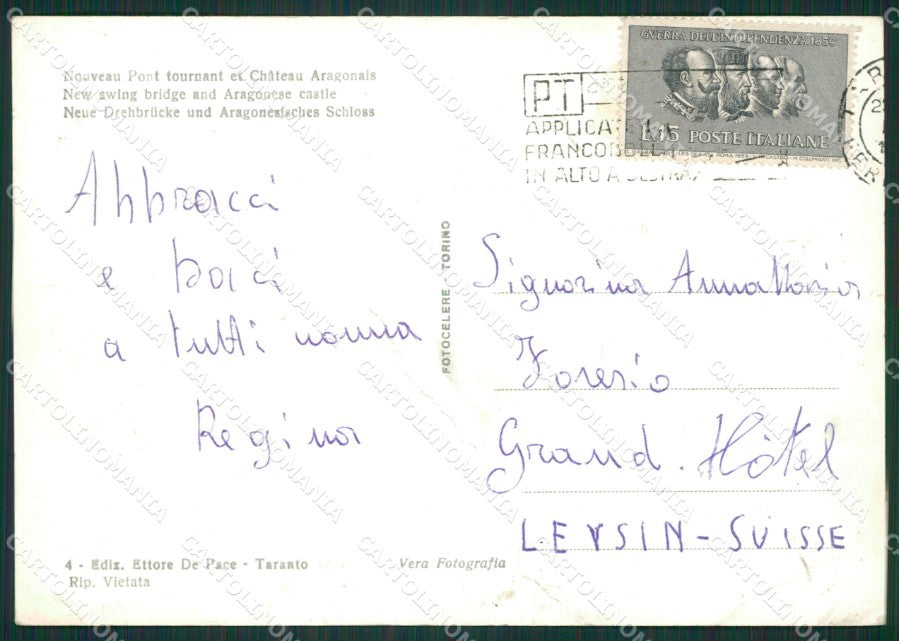 Nouveau Pont tournant et Château Aragonais
New swing bridge and Aragonese castle
Neue Drehbrücke und Aragonesisches Schloss
Abbracci
e baci
a tutti nonna
Regina
4 - Ediz. Ettore De Pace - Taranto
Rip. Vietata
Vera Fotografia
FOTOCELERE - TORINO
GUERRA DELL'INDIPENDENZA 1859
L. 15 POSTE ITALIANE
PT
APPLICATE
IN ALTO A DESTRA
Signorina AnnaMaria
Grand. Hôtel
LEYSIN - SUISSE
CARTOLINOMANIA